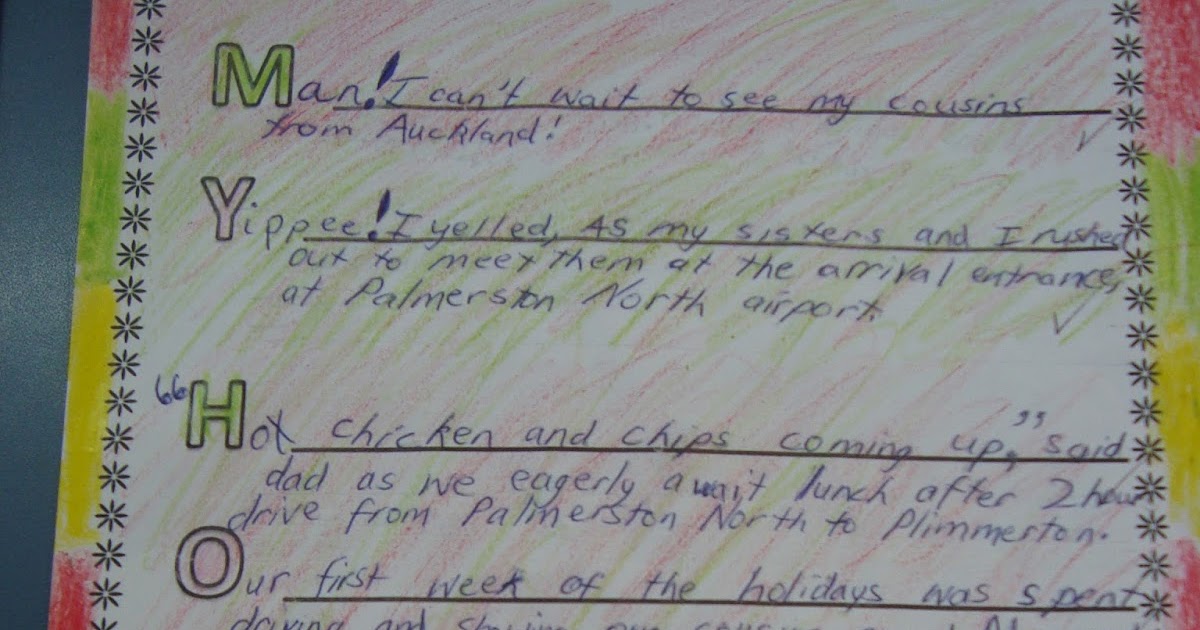 Man! I can't wait to see my cousins
from Auckland!
Yippee! I yelled, AS my sisters and I rushed
out to meet them at the arrival entrance,
at Palmerston North airport.
"Hot chicken and chips coming up," said
dad as we eagerly await lunch after 2 hour
drive from Palmerston North to Plimmerton.
Our first week of the holidays was spent
driving and our